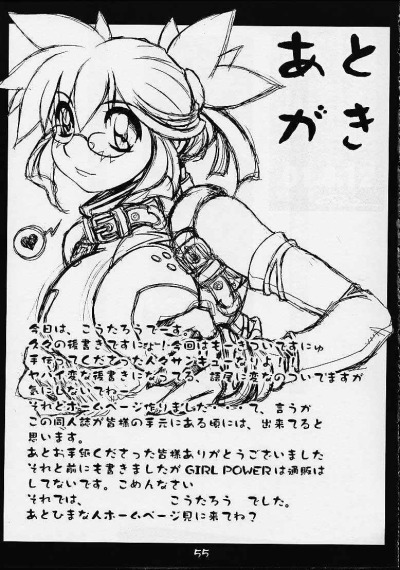 あとがき
今日は、こうたろうでーす。
久々の後書きですにょー!今回はもーきついですにゅ
手伝ってくださった人々サンキューなりょ!!
ヤバイ変な後書きになってる、語尾に変なのついてますが
気にしないでね。
それとホームページ作りました・・・て、言うか
この同人誌が皆様の手元にある頃には、出来てると
思います。
あとお手紙くださった皆様ありがとうございました
それと前にも書きましたがGIRL POWERは通販は
してないです。ごめんなさい
それでは、 こうたろう でした。
あとひまな人ホームページ見に来てね?
55